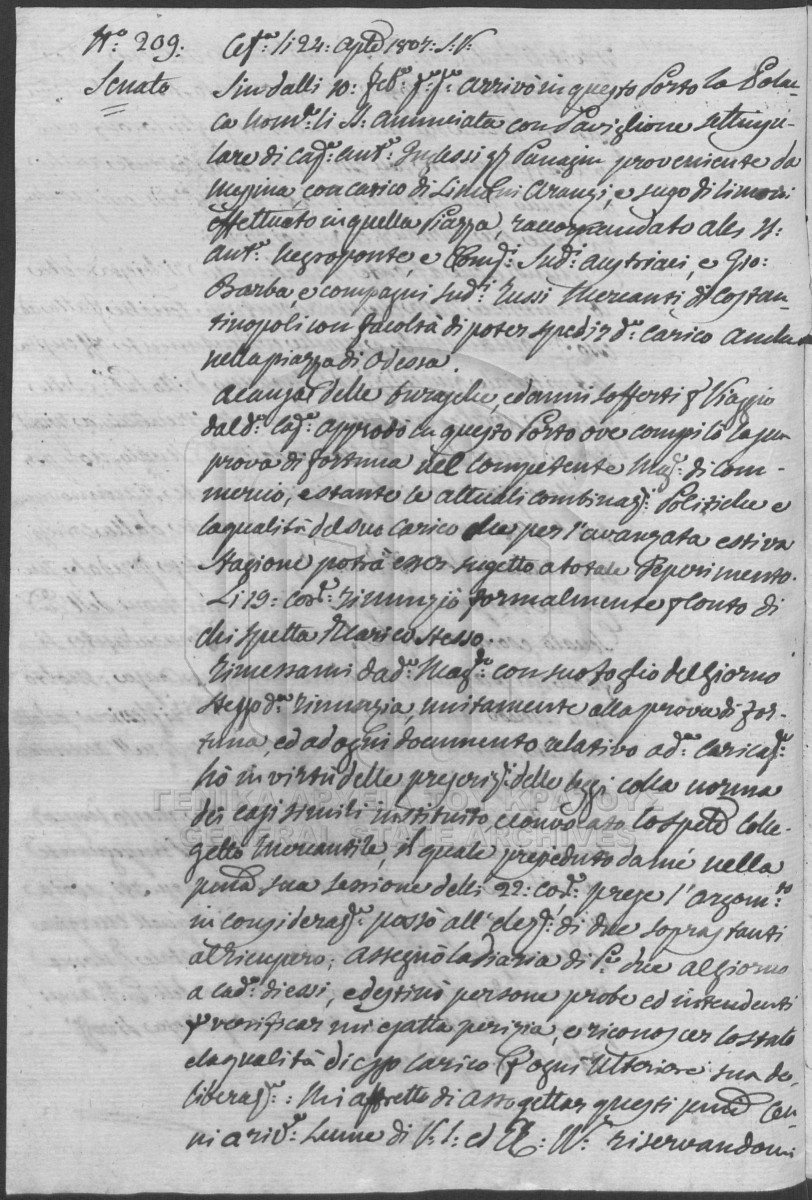 N.º 209: Cef.ª li 24: Aple 1807: S:V:
Senato Sin dalli 10: Feb.º p.º p.º arrivò in questo Porto la Polac-
ca nom.ª li SS: Annunciata con Paviglione settinsu-
lare di Cap.º Ant.º Inglessi q.m Panagin proveniente da
Messina, con carico di Limoni Aranzi, e sugo di limoni
effettuato in quella Piazza, raccomandato a les SS:
Ant.º Negroponte, e Comp.i Sud.i Austriaci, e Gio:
Barba e compagni sud.i Russi Mercanti di Costan-
tinopoli con facoltà di poter spedir d.º Carico anche
nella piazza di Odessa.
A causa delle burasche, e danni sofferti p Viaggio
dal d.º Cap.º approdò in questo Porto ove compilò la sua
prova di fortuna nel competente Mag.º di Com-
mercio, e stante le attuali combinaz.i Politiche e
la qualità del suo Carico che per l'avanzata estiva
stagione potrà esser sugetto a totale deperimento.
Li 19: cor.e rinunziò formalmente p Conto di
chi spetta il Carico stesso.
Rimessami da d.º Mag.º con suo foglio del giorno
stesso d.ª rinunzia, unitamente alla prova di for-
tuna, ed ad ogni documento relativo a d.º carico
hò in virtù delle prescriz.i delle leggi colla norma
dei casi simili instituito e convocato lo spet.e Colle-
getto Mercantile, il quale preseduto da mè nella
sua sessione delli 22: cor.e prese l'argom.to
in considera.e passò all'elez.e di due soprastanti
al ricupero; assegnò la diaria di P.i due al giorno
a cad.º di essi, e destinò persone probe ed intendenti
p verificar un'esatta perizia, e riconoscer lo stato
e la qualità di esso carico p ogni ulteriore sua de-
liberaz.e: Mi affretto di assogettar questi Cen-
ni a riv.º Lume di V.S: ed Ill: riservandomi
ΓΕΝΙΚΑ ΑΡΧΕΙΑ ΤΟΥ ΚΡΑΤΟΥΣ
GENERAL STATE ARCHIVES